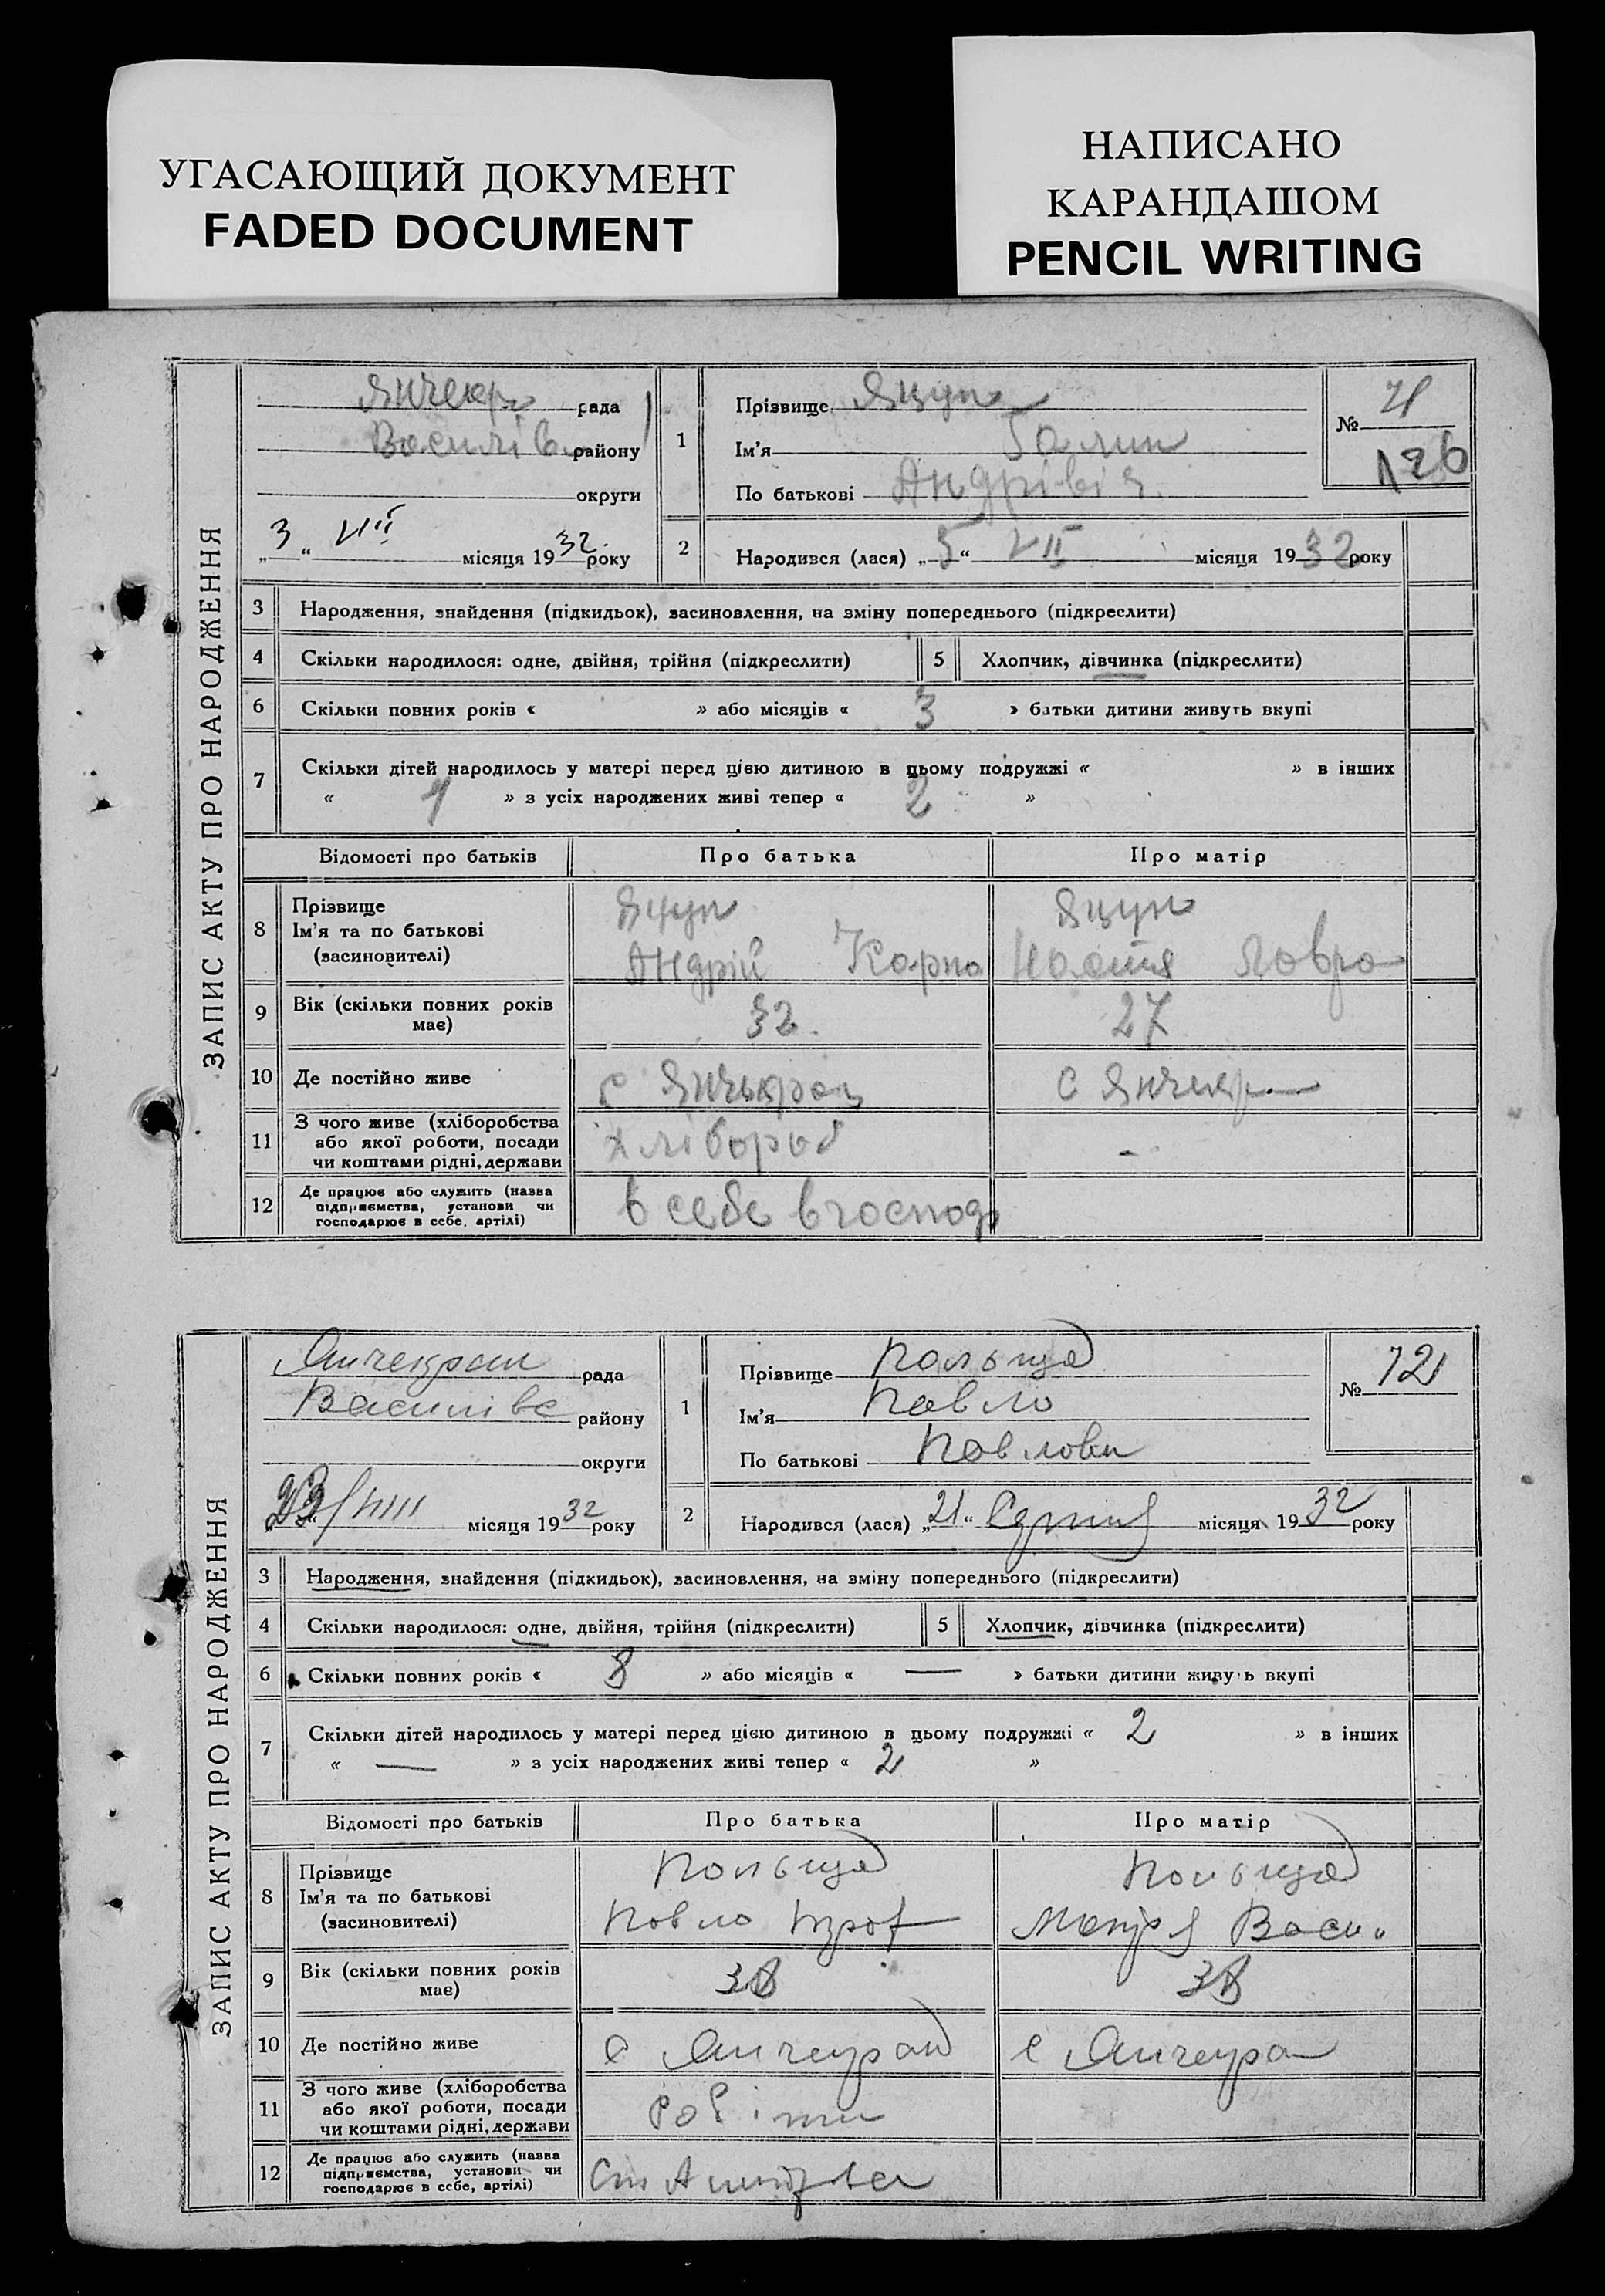 УГАСАЮЩИЙ ДОКУМЕНТ
FADED DOCUMENT
НАПИСАНО
КАРАНДАШОМ
PENCIL WRITING
ЗАПИС АКТУ ПРО НАРОДЖЕННЯ
Янчекр рада
Василів району
округи
„3“ VII місяця 1932 року
1
Прізвище Яцун
Ім'я Галин
По батькові Андрівія
№
126
2 Народився (лася) „5“ VII місяця 1932 року
3 Народження, знайдення (підкидьок), засиновлення, на зміну попереднього (підкреслити)
4 Скільки народилося: одне, двійня, трійня (підкреслити) 5 Хлопчик, дівчинка (підкреслити)
6 Скільки повних років « » або місяців « 3 » батьки дитини живуть вкупі
7 Скільки дітей народилось у матері перед цією дитиною в цьому подружжі « » в інших
« 1 » з усіх народжених живі тепер « 2 »
Відомості про батьків Про батька Про матір
8 Прізвище Яцун Яцун
Ім'я та по батькові
(засиновителі) Андрій Карпо Настя Лавро
9 Вік (скільки повних років має) 32. 27
10 Де постійно живе с Янчекрац с Янчекр
11 З чого живе (хліборобства
або якої роботи, посади хлібороб -
чи коштами рідні, держави
12 Де працює або служить (назва
підприємства, установи чи в себе в господ
господарює в себе, артілі)
ЗАПИС АКТУ ПРО НАРОДЖЕННЯ
Янчекрак рада
Василівс району
округи
VIII місяця 1932 року
1
Прізвище Кольца
Ім'я Павло
По батькові Павлови
№ 121
2 Народився (лася) „21“ Серпня місяця 1932 року
3 Народження, знайдення (підкидьок), засиновлення, на зміну попереднього (підкреслити)
4 Скільки народилося: одне, двійня, трійня (підкреслити) 5 Хлопчик, дівчинка (підкреслити)
6 Скільки повних років « 8 » або місяців « — » батьки дитини живуть вкупі
7 Скільки дітей народилось у матері перед цією дитиною в цьому подружжі « 2 » в інших
« — » з усіх народжених живі тепер « 2 »
Відомості про батьків Про батька Про матір
8 Прізвище Кольца Кольца
Ім'я та по батькові Павло Троф Марія Васи
(засиновителі)
9 Вік (скільки повних років має) 38 38
10 Де постійно живе с Янчекрак с Янчекра
11 З чого живе (хліборобства
або якої роботи, посади Робітни
чи коштами рідні, держави
12 Де працює або служить (назва
підприємства, установи чи
господарює в себе, артілі)